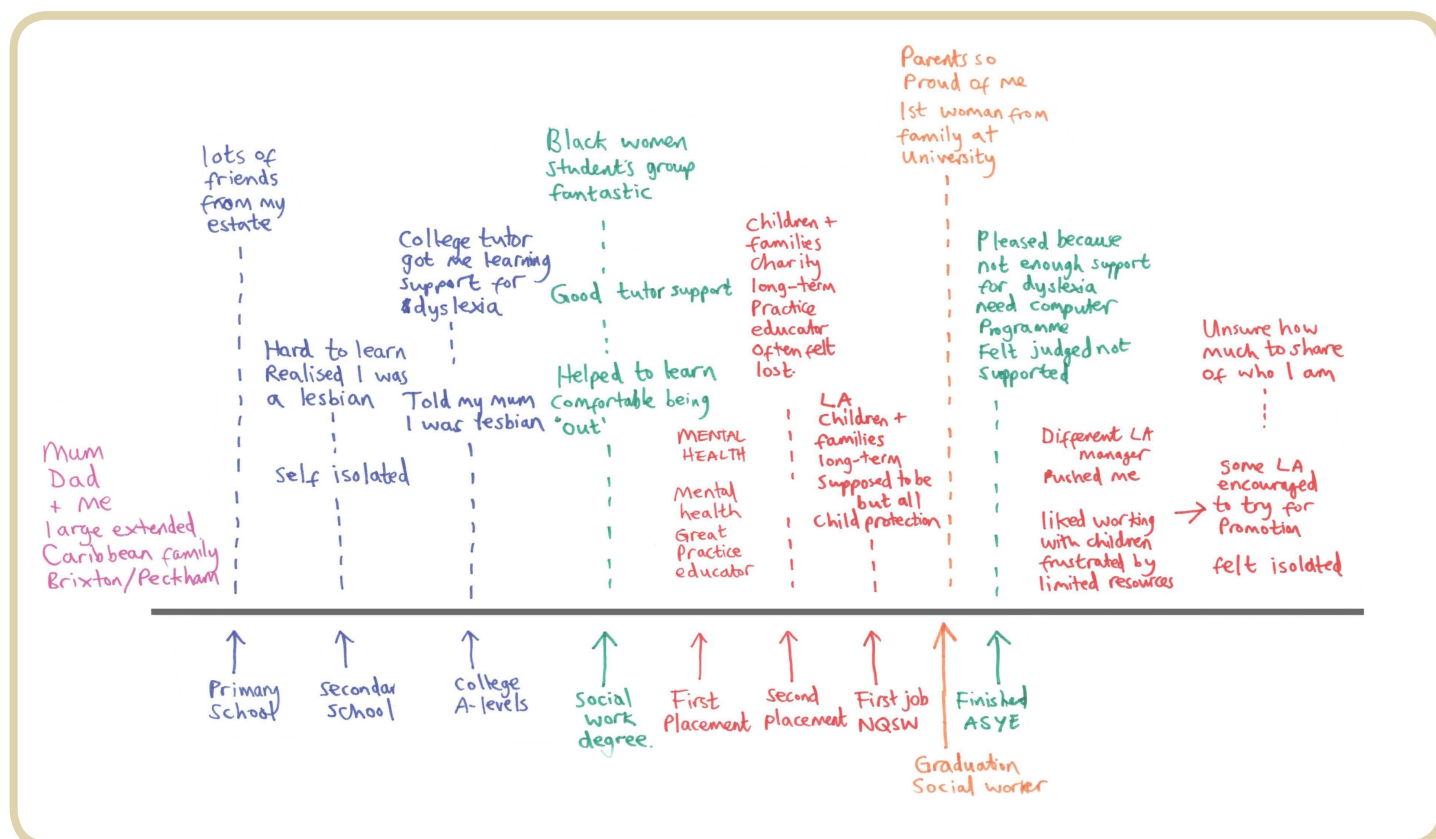 Mum
Dad
+ Me
large extended
Caribbean family
Brixton/Peckham
lots of
friends
from my
estate
Hard to learn
Realised I was
a lesbian
Self isolated
College tutor
got me learning
support for
dyslexia
Told my mum
I was lesbian
Black women
student's group
fantastic
Good tutor support
Helped to learn
comfortable being
"out"
MENTAL
HEALTH
Mental
health
Great
Practice
educator
Children +
families
Charity
long-term
Practice
educator
Often felt
lost.
LA
Children +
families
long-term
Supposed to be
but all
Child protection
Parents so
Proud of me
1st woman from
family at
University
Pleased because
not enough support
for dyslexia
need computer
Programme
Felt judged not
supported
Different LA
manager
Pushed me
liked working
with children
frustrated by
limited resources
Unsure how
much to share
of who I am
some LA
encouraged
to try for
Promotion
felt isolated
Primary
School
Secondar
School
College
A-levels
Social
work
degree.
First
Placement
Second
placement
First job
NQSW
Graduation
Social worker
Finished
ASYE